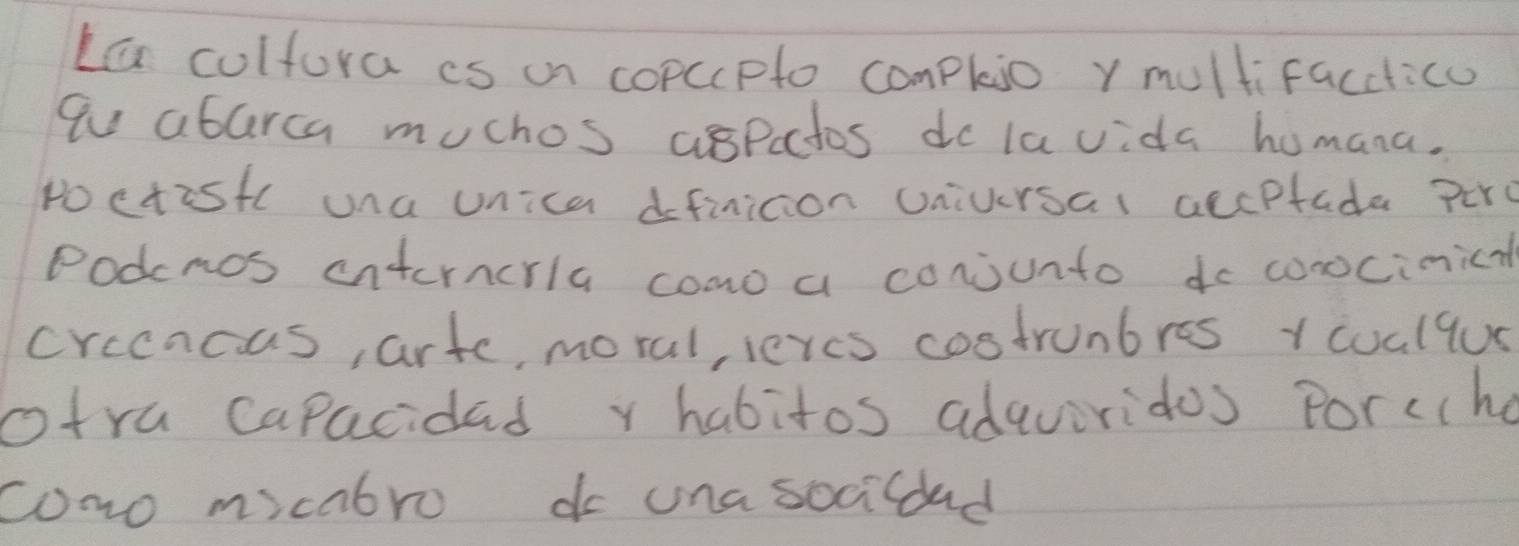 La cultura es un copcepto complejo y multifacetico
qu abarca muchos aspectos de la vida humana.
no existe una unica definicion universal aceptada pero
podemos enternerla como a conjunto de conocimient
creencias, arte, moral, leyes costrunbres y cualque
otra capacidad y habitos adquiridos por el ho
como mienbro de una sociedad